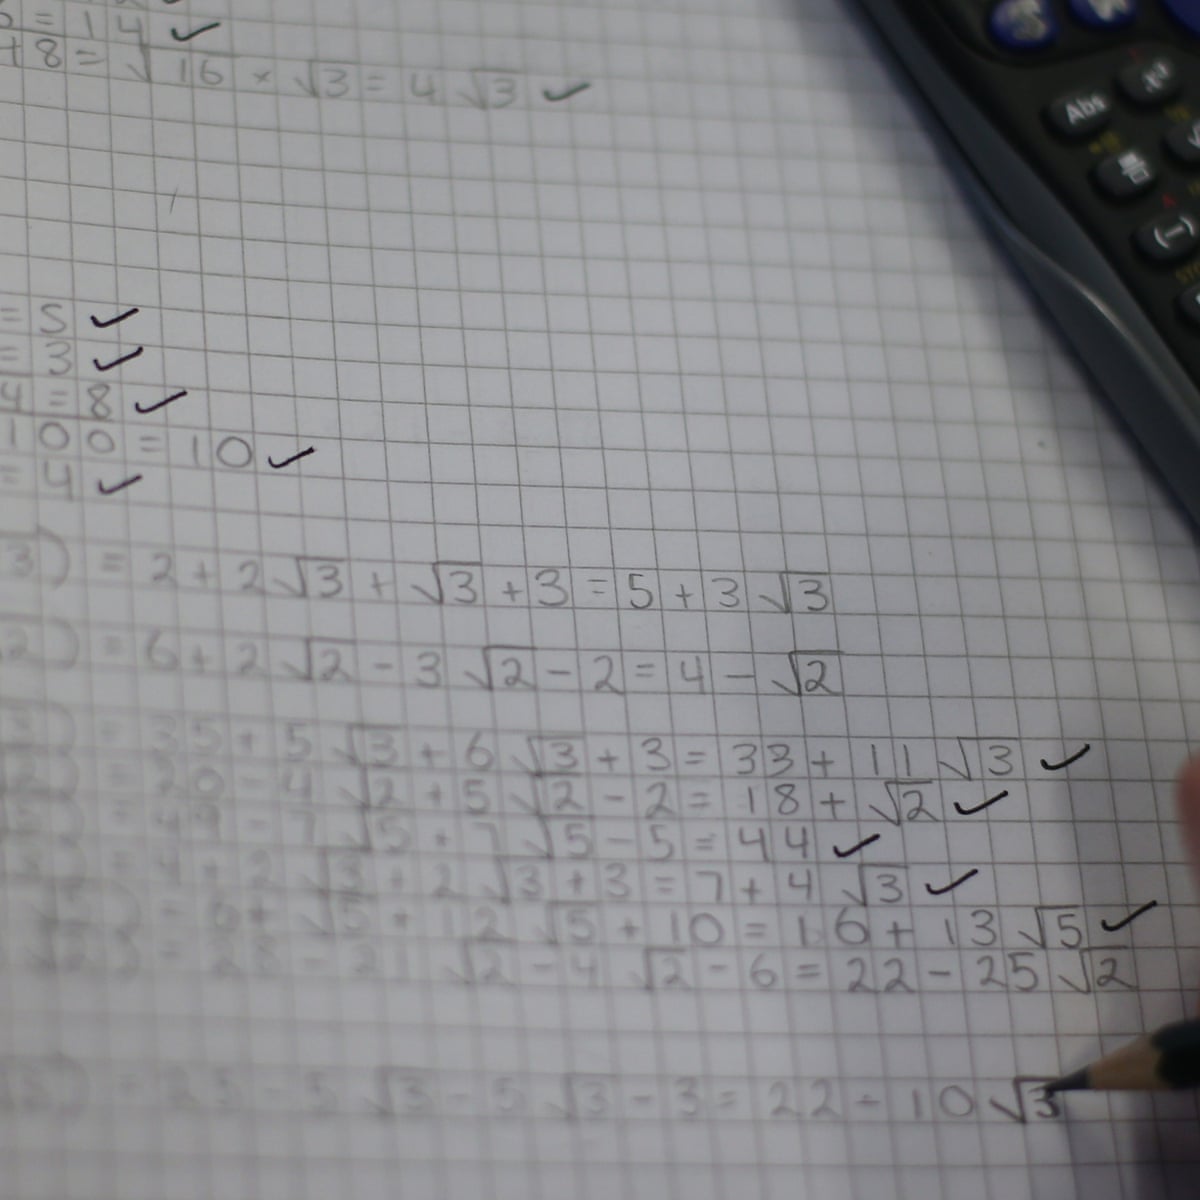 = 14 ✓
48 = √16 × √3 = 4√3 ✓
= 5 ✓
= 3 ✓
4 = 8 ✓
100 = 10 ✓
= 4 ✓
3) = 2 + 2√3 + √3 + 3 = 5 + 3√3
2) = 6 + 2√2 - 3√2 - 2 = 4 - √2
= 35 + 5√3 + 6√3 + 3 = 33 + 11√3 ✓
= 20 - 4√2 + 5√2 - 2 = 18 + √2 ✓
= 49 - 7√5 + 7√5 - 5 = 44 ✓
= 4 + 2√3 + 2√3 + 3 = 7 + 4√3 ✓
= 6 + √5 + 12√5 + 10 = 16 + 13√5 ✓
= 28 - 21√2 - 4√2 - 6 = 22 - 25√2
25 - 5√3 - 5√3 - 3 = 22 - 10√3
Abs
x²
(-)